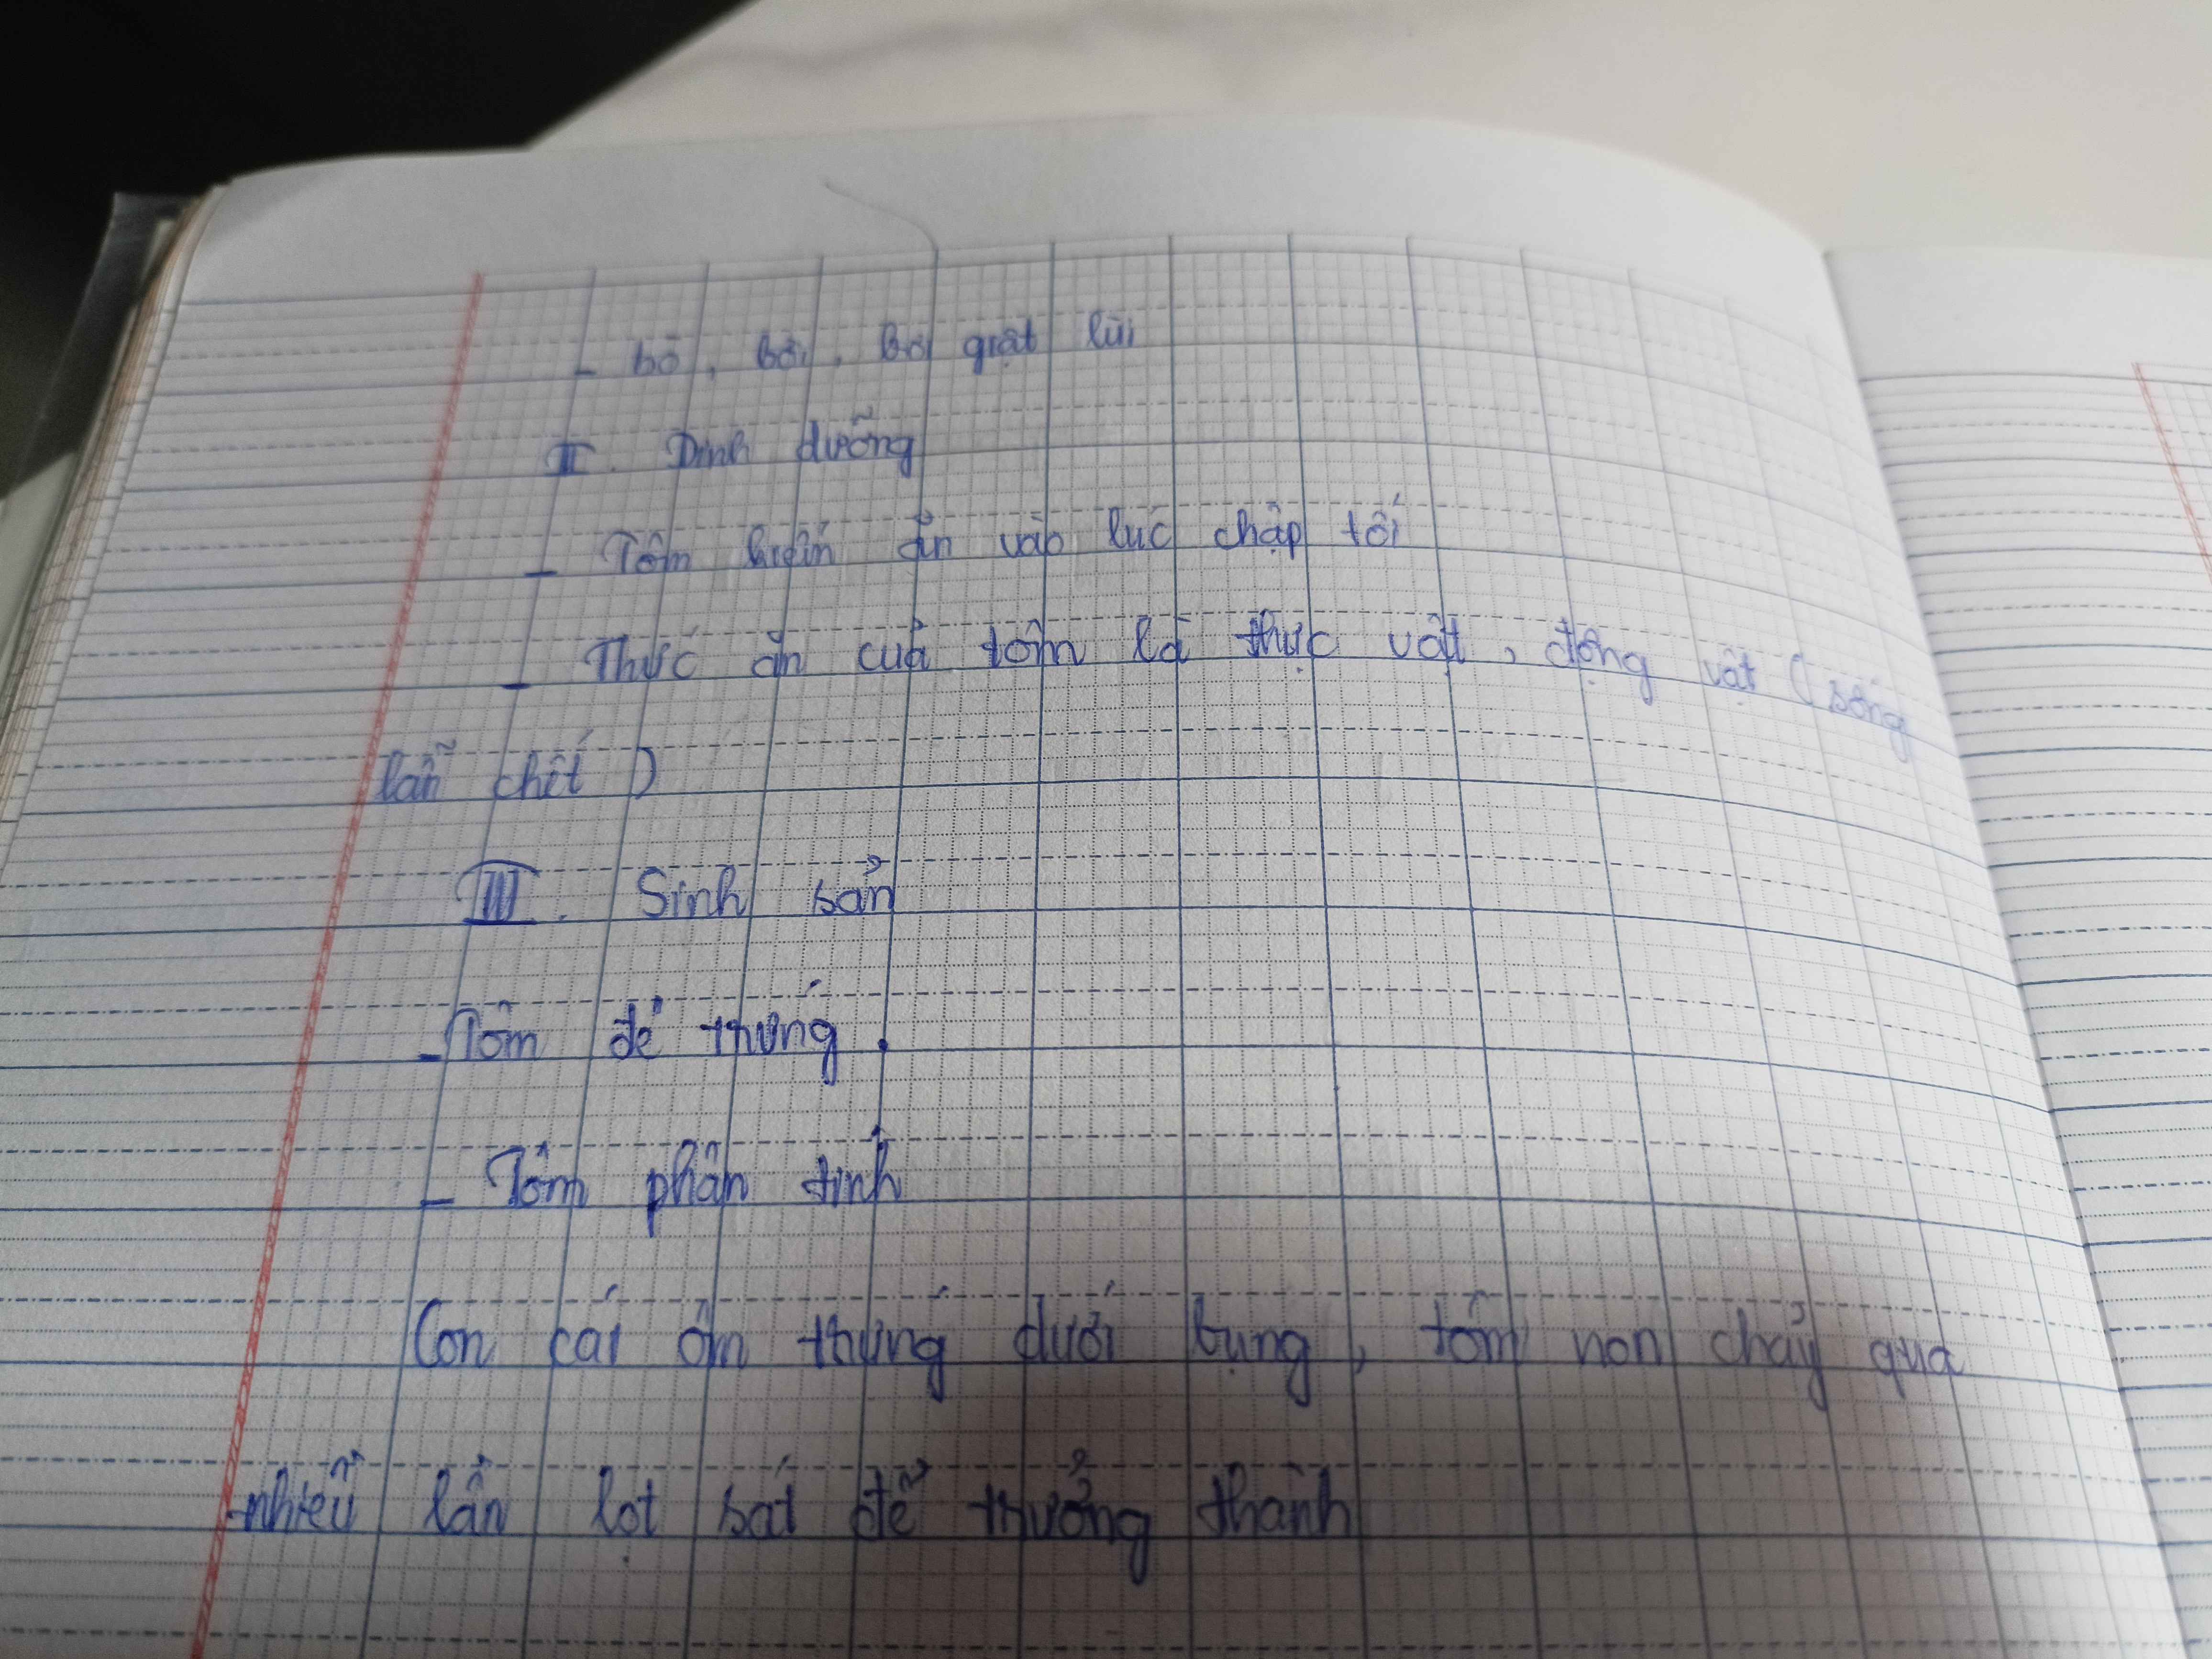 - bò, bơi, bơi giật lùi
II. Dinh dưỡng
- Tôm kiếm ăn vào lúc chập tối
- Thức ăn của tôm là thực vật, động vật (sống
lẫn chết)
III. Sinh sản
- Tôm đẻ trứng.
- Tôm phân tính
Con cái ôm trứng dưới bụng, tôm non chảy qua
nhiều lần lột sát để trưởng thành